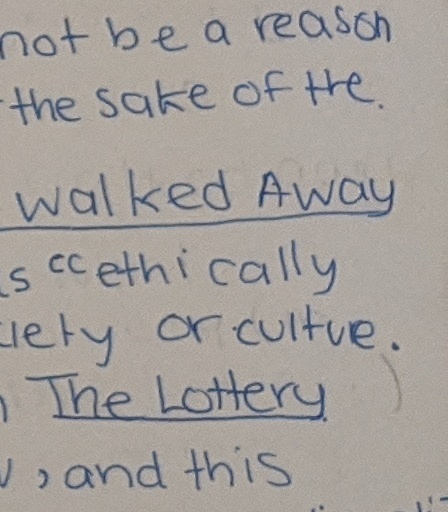 not be a reason
the sake of the.
walked Away
s "ethically
iety or culture.
The Lottery
, and this